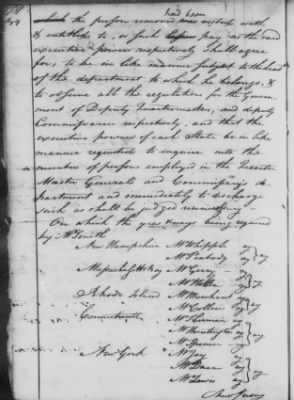 which the person removed was vested with
& entitled to, or such pay, as the said
executive powers respectively shall agree
for, to be in like manner subject to the head
of the department to which he belongs, &
to observe all the regulations for the Govern
ment of Deputy Quartermaster, and deputy
Commissaries respectively, and that the
executive powers of each State be in like
manner requested to enquire into the
number of persons employed in the Quarter
Master Generals and Commissary's de-
partment and immediately to discharge
such as shall be judged unnecessary.
On which the yeas & nays being required
by Mr Smith
New Hampshire Mr Whipple ay
Mr Peabody ay ay
Massachusetts Bay Mr Gerry ay
Mr Holten ay ay
Rhode Island Mr Marchant ay
Mr Collins ay ay
Connecticut Mr Sherman ay
Mr Huntington ay ay
Mr Spencer ay
New York Mr Jay ay
Mr Duane ay ay
Mr Lewis ay
New Jersey